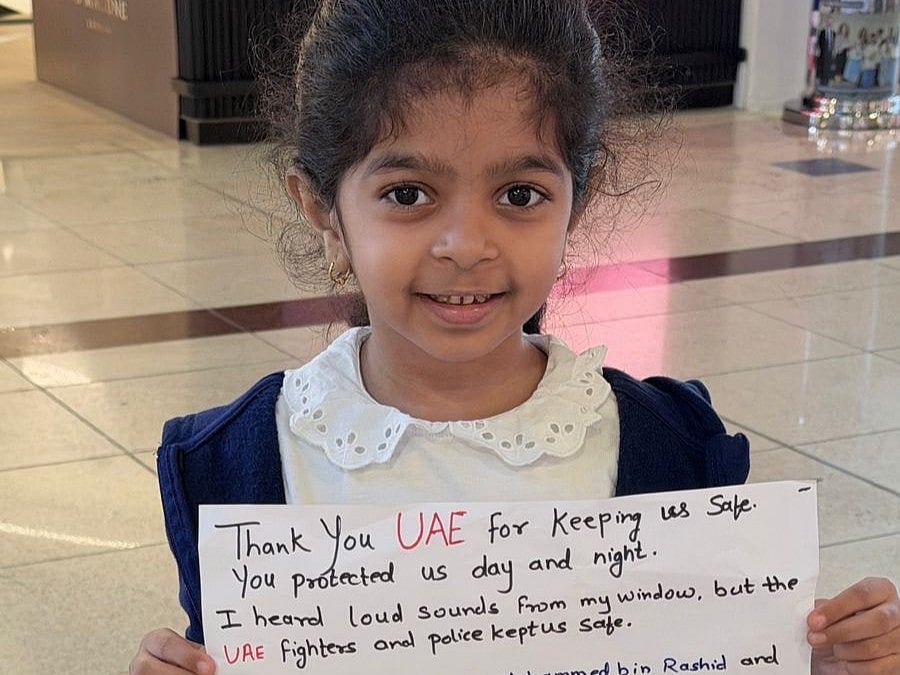 Thank You UAE for keeping us safe.
You protected us day and night.
I heard loud sounds from my window, but the
UAE fighters and police kept us safe.
bin Rashid and